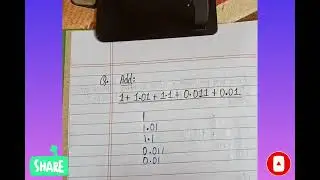 Q. Add:
1 + 1.01 + 1.1 + 0.011 + 0.01.
1
1.01
1.1
0.011
0.01
SHARE